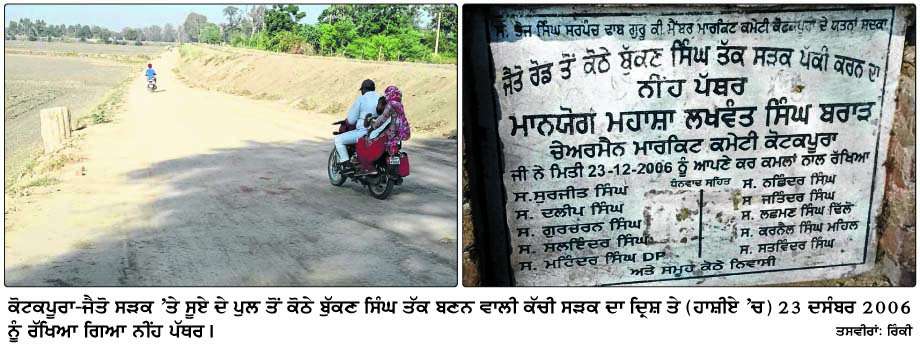 ਸ. ਤੇਜ ਸਿੰਘ ਸਰਪੰਚ ਢਾਬ ਗੁਰੂ ਕੀ ਮੈਂਬਰ ਮਾਰਕਿਟ ਕਮੇਟੀ ਕੋਟਕਪੂਰਾ ਦੇ ਯਤਨਾਂ ਸਦਕਾ
ਜੈਤੋ ਰੋਡ ਤੋਂ ਕੋਠੇ ਬੁੱਕਣ ਸਿੰਘ ਤੱਕ ਸੜਕ ਪੱਕੀ ਕਰਨ ਦਾ
ਨੀਂਹ ਪੱਥਰ
ਮਾਨਯੋਗ ਮਹਾਸ਼ਾ ਲਖਵੰਤ ਸਿੰਘ ਬਰਾੜ
ਚੇਅਰਮੈਨ ਮਾਰਕਿਟ ਕਮੇਟੀ ਕੋਟਕਪੂਰਾ
ਜੀ ਨੇ ਮਿਤੀ 23-12-2006 ਨੂੰ ਆਪਣੇ ਕਰ ਕਮਲਾਂ ਨਾਲ ਰੱਖਿਆ
ਧੰਨਵਾਦ ਸਹਿਤ
ਸ. ਸੁਰਜੀਤ ਸਿੰਘ
ਸ. ਦਲੀਪ ਸਿੰਘ
ਸ. ਗੁਰਚਰਨ ਸਿੰਘ
ਸ. ਸਲਇੰਦਰ ਸਿੰਘ
ਸ. ਮਹਿੰਦਰ ਸਿੰਘ DP
ਸ. ਨਛਿੰਦਰ ਸਿੰਘ
ਸ. ਜਤਿੰਦਰ ਸਿੰਘ
ਸ. ਲਛਮਣ ਸਿੰਘ ਢਿੱਲੋਂ
ਸ. ਕਰਨੈਲ ਸਿੰਘ ਮਹਿਲ
ਸ. ਸਤਵਿੰਦਰ ਸਿੰਘ
ਅਤੇ ਸਮੂਹ ਕੋਠੇ ਨਿਵਾਸੀ
ਕੋਟਕਪੂਰਾ-ਜੈਤੋ ਸੜਕ ’ਤੇ ਸੂਏ ਦੇ ਪੁਲ ਤੋਂ ਕੋਠੇ ਬੁੱਕਣ ਸਿੰਘ ਤੱਕ ਬਣਨ ਵਾਲੀ ਕੱਚੀ ਸੜਕ ਦਾ ਦ੍ਰਿਸ਼ ਤੇ (ਹਾਸ਼ੀਏ ’ਚ) 23 ਦਸੰਬਰ 2006
ਨੂੰ ਰੱਖਿਆ ਗਿਆ ਨੀਂਹ ਪੱਥਰ।
ਤਸਵੀਰਾਂ: ਰਿੰਕੀ